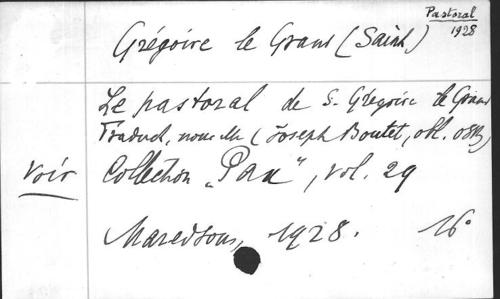 Pastoral
1928
Grégoire le Grand (Saint)
Le pastoral de S. Grégoire le Grand
Traduct. nouv. de (Joseph Boutet, obl. OSB)
voir Collection "Pax", vol. 29
Maredsous, 1928. 16°